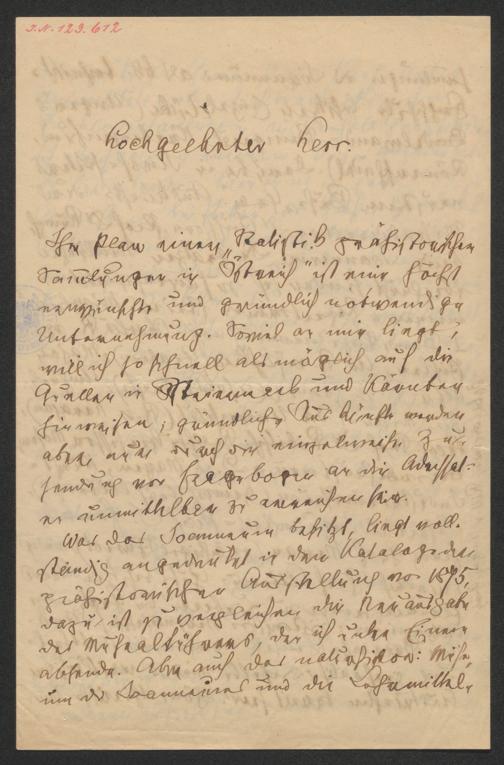 J.N. 129.612
Hochgeehrter Herr.
Ihr Plan einer „Statistik prähistorischer
Sammlungen in Östreich" ist eine höchst
erwünschte und gründlich notwendige
Unternehmung. Soviel an mir liegt,
will ich so schnell als möglich auf die
Quellen in Steiermark und Kärnten
hinweisen; gründliche Auskünfte werden
aber nur durch die einzelweise Zu-
sendung von Fragebogen an die Adressat-
en unmittelbar zu erreichen sein.
Was das Joanneum besitzt, liegt voll-
ständig angedeutet in dem Kataloge der
prähistorischen Ausstellung von 1875,
dazu ist zu vergleichen die Neuausgabe
des Musealführers, der ich unter Einem
absende. Aber auch das naturhistor: Muse-
um des Joanneums und die Lehrmittel-